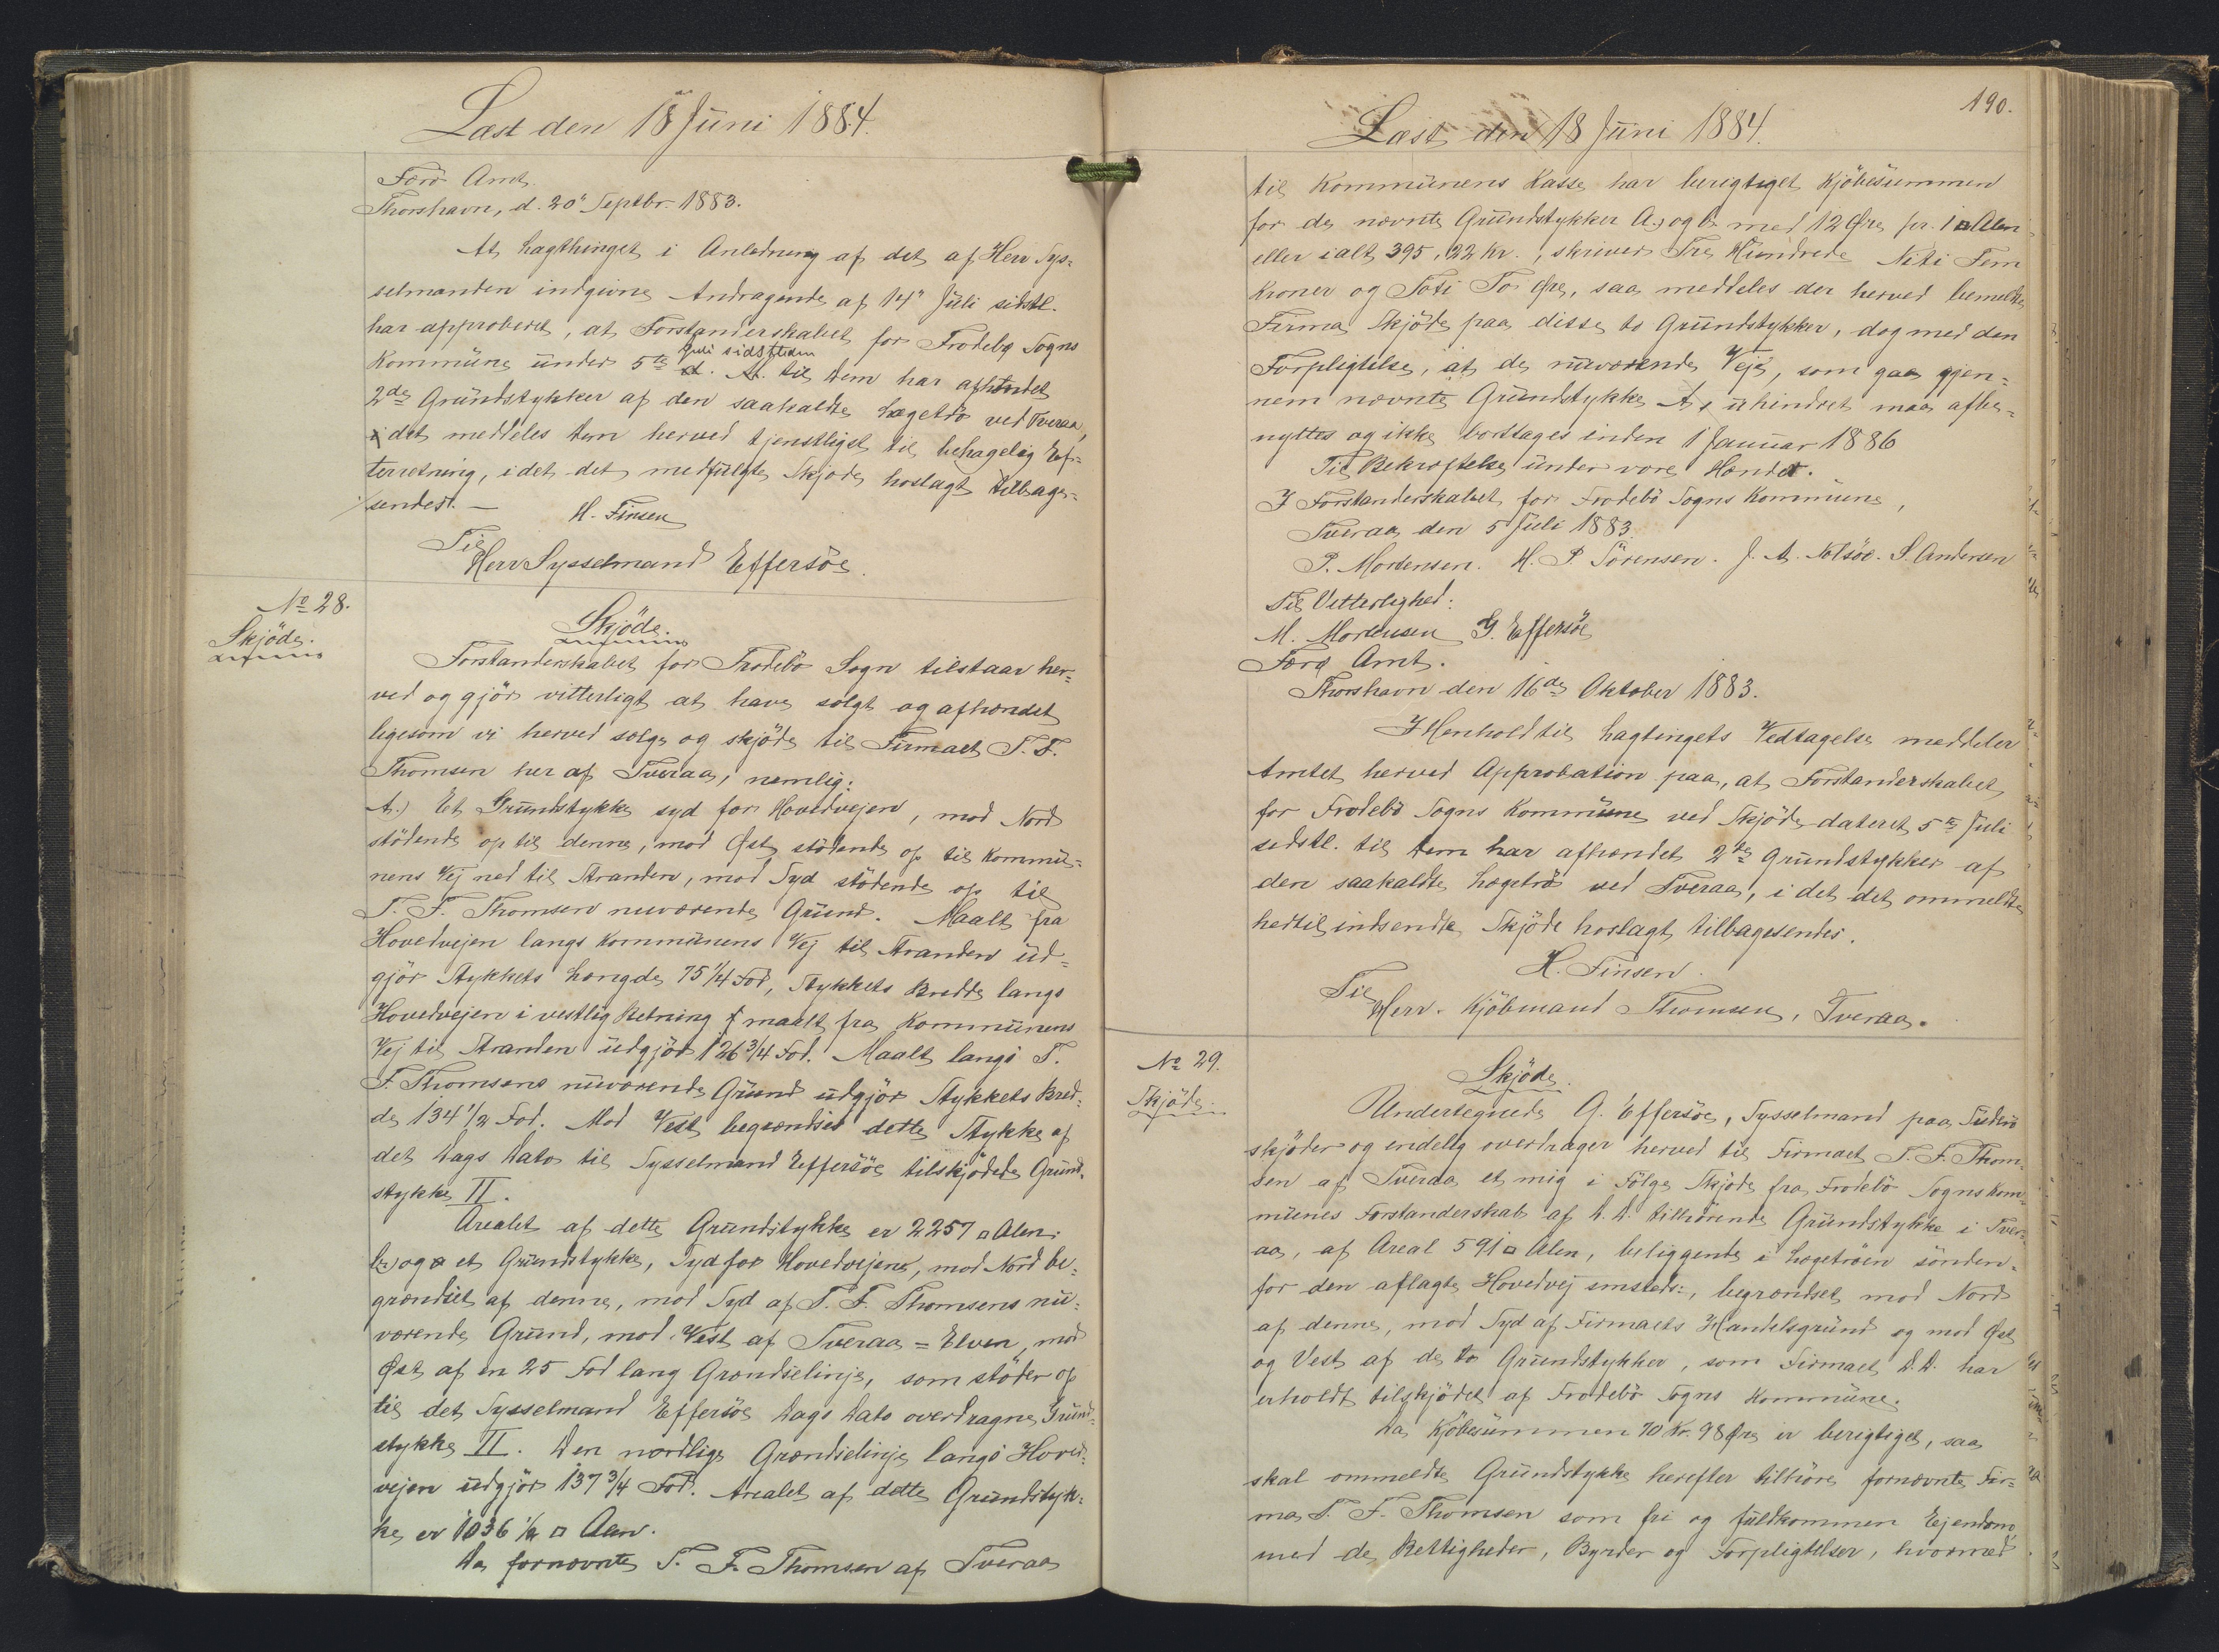 Læst den 18 Juni 1884.
Færö Amt.
Thorshavn, d. 20" Septbr. 1883.
At Lagthinget i Anledning af det af Herr Sys=
selmanden indgivne Andragende af 14" Juli sidstl.
har approberet, at Forstanderskabet for Frodebø Sogns
Juli sidstleden
Kommune under 5te d. A. til Dem har afhændet
2de Grundstykker af den saakaldte Lægetrö ved Tveraa,
i det meddeles Dem herved tjenstligst til behagelig Ef=
terretning, idet det medfulgte Skjøde hoslagt tilbage=
sendes. —
H. Finsen
Til
Herr Sysselmand Effersöe.
No 28.
Skjöde.
Skjöde.
Forstanderskabet for Frodebö Sogn tilstaar her=
ved og gjör vitterligt at have solgt og afhændet
ligesom vi herved sælge og skjöde til Firmaet T. F.
Thomsen her af Tveraa, nemlig:
A.) Et Grundstykke syd for Hovedvejen, mod Nord
stödende op til denne, mod Øst stödende op til Kommu=
nens Vej ned til Stranden, mod Syd stödende op til
T. F. Thomsen nuværende Grund. Maalt fra
Hovedvejen langs Kommunens Vej til Stranden ud=
gjör Stykkets Længde 75 1/4 Fod, Stykkets Bredde langs
Hovedvejen i vestlig Retning maalt fra Kommunens
Vej til Stranden udgjör 126 3/4 Fod. Maalt langs T.
F. Thomsens nuværende Grund udgjör Stykkets Bred=
de 134 1/2 Fod. Mod Vest begrændses dette Stykke af
det Dags Dato til Sysselmand Effersöe tilskjödede Grund=
stykke II.
Arealet af dette Grundstykke er 2257 □ Alen.
b.) og et Grundstykke, Syd for Hovedvejen, mod Nord be=
grændset af denne, mod Syd af T. F. Thomsens nu=
værende Grund, mod Vest af Tveraa = Elven, mod
Øst af en 25 Fod lang Grændselinje, som stöder op
til det Sysselmand Effersöe Dags Dato overdragne Grund=
stykke II. Den nordlige Grændselinje langs Hoved=
vejen udgjör 137 3/4 Fod. Arealet af dette Grundstyk=
ke er 1036 1/2 □ Alen.
Da fornævnte T. F. Thomsen af Tveraa
190.
Læst den 18 Juni 1884.
til Kommunens Kasse har berigtiget Kjöbesummen
for de nævnte Grundstykker A.) og b. med 12 Øre pr. 1 □ Alen
eller ialt 395,22 Kr., skriver Tre Hundrede Niti Fem
Kroner og Toti To Øre, saa meddeles der herved bemeldte
Firma Skjöde paa disse to Grundstykker, dog med den
Forpligtelse, at de nuværende Veje, som gaa gjen=
nem nævnte Grundstykke A, uhindret maa afbe=
nyttes og ikke borttages inden 1 Januar 1886
Til Bekræftelse under vore Hænder.
I Forstanderskabet for Frodebö Sogns Kommune,
Tveraa den 5 Juli 1883.
P. Mortensen. H. P. Sörensen. J. A. Nolsöe. S. Andersen
Til Vitterlighed:
M. Mortensen G. Effersöe
Færø Amt.
Thorshavn den 16de Oktober 1883.
I Henhold til Lagtingets Vedtagelse meddeler
Amtet herved Approbation paa, at Forstanderskabet
for Frodebö Sogns Kommune ved Skjöde dateret 5te Juli
sidstl. til Dem har afhændet 2de Grundstykker af
den saakaldte Lægetrö ved Tveraa, i det det ommeldte
hertil indsendte Skjöde hoslagt tilbagesendes.
H. Finsen.
Til
Herr. Kjöbmand Thomsen, Tveraa.
No 29.
Skjöde.
Skjöde.
Undertegnede G. Effersöe, Sysselmand paa Suderö
skjöder og endelig overdrager herved til Firmaet T. F. Thom=
sen af Tveraa et mig i Fölge Skjöde fra Frodebö Sogns Kom=
munes Forstanderskab af D. D. tilhörende Grundstykke i Tver=
aa, af Areal 591 □ Alen, beliggende i Lægetröen sönden=
for den aflagte Hovedvej smsteds, begrændset mod Nord
af denne, mod Syd af Firmaets Handelsgrund og mod Øst
og Vest af de to Grundstykker, som Firmaet D.D. har
erholdt tilskjödet af Frodebö Sogns Kommune.
Da Kjöbesummen 70 Kr. 98 Øre er berigtiget, saa
skal ommeldte Grundstykke herefter tilhöre fornævnte Fir=
ma T. F. Thomsen som fri og fuldkommen Ejendom
med de Rettigheder, Byrder og Forpligtelser, hvormed